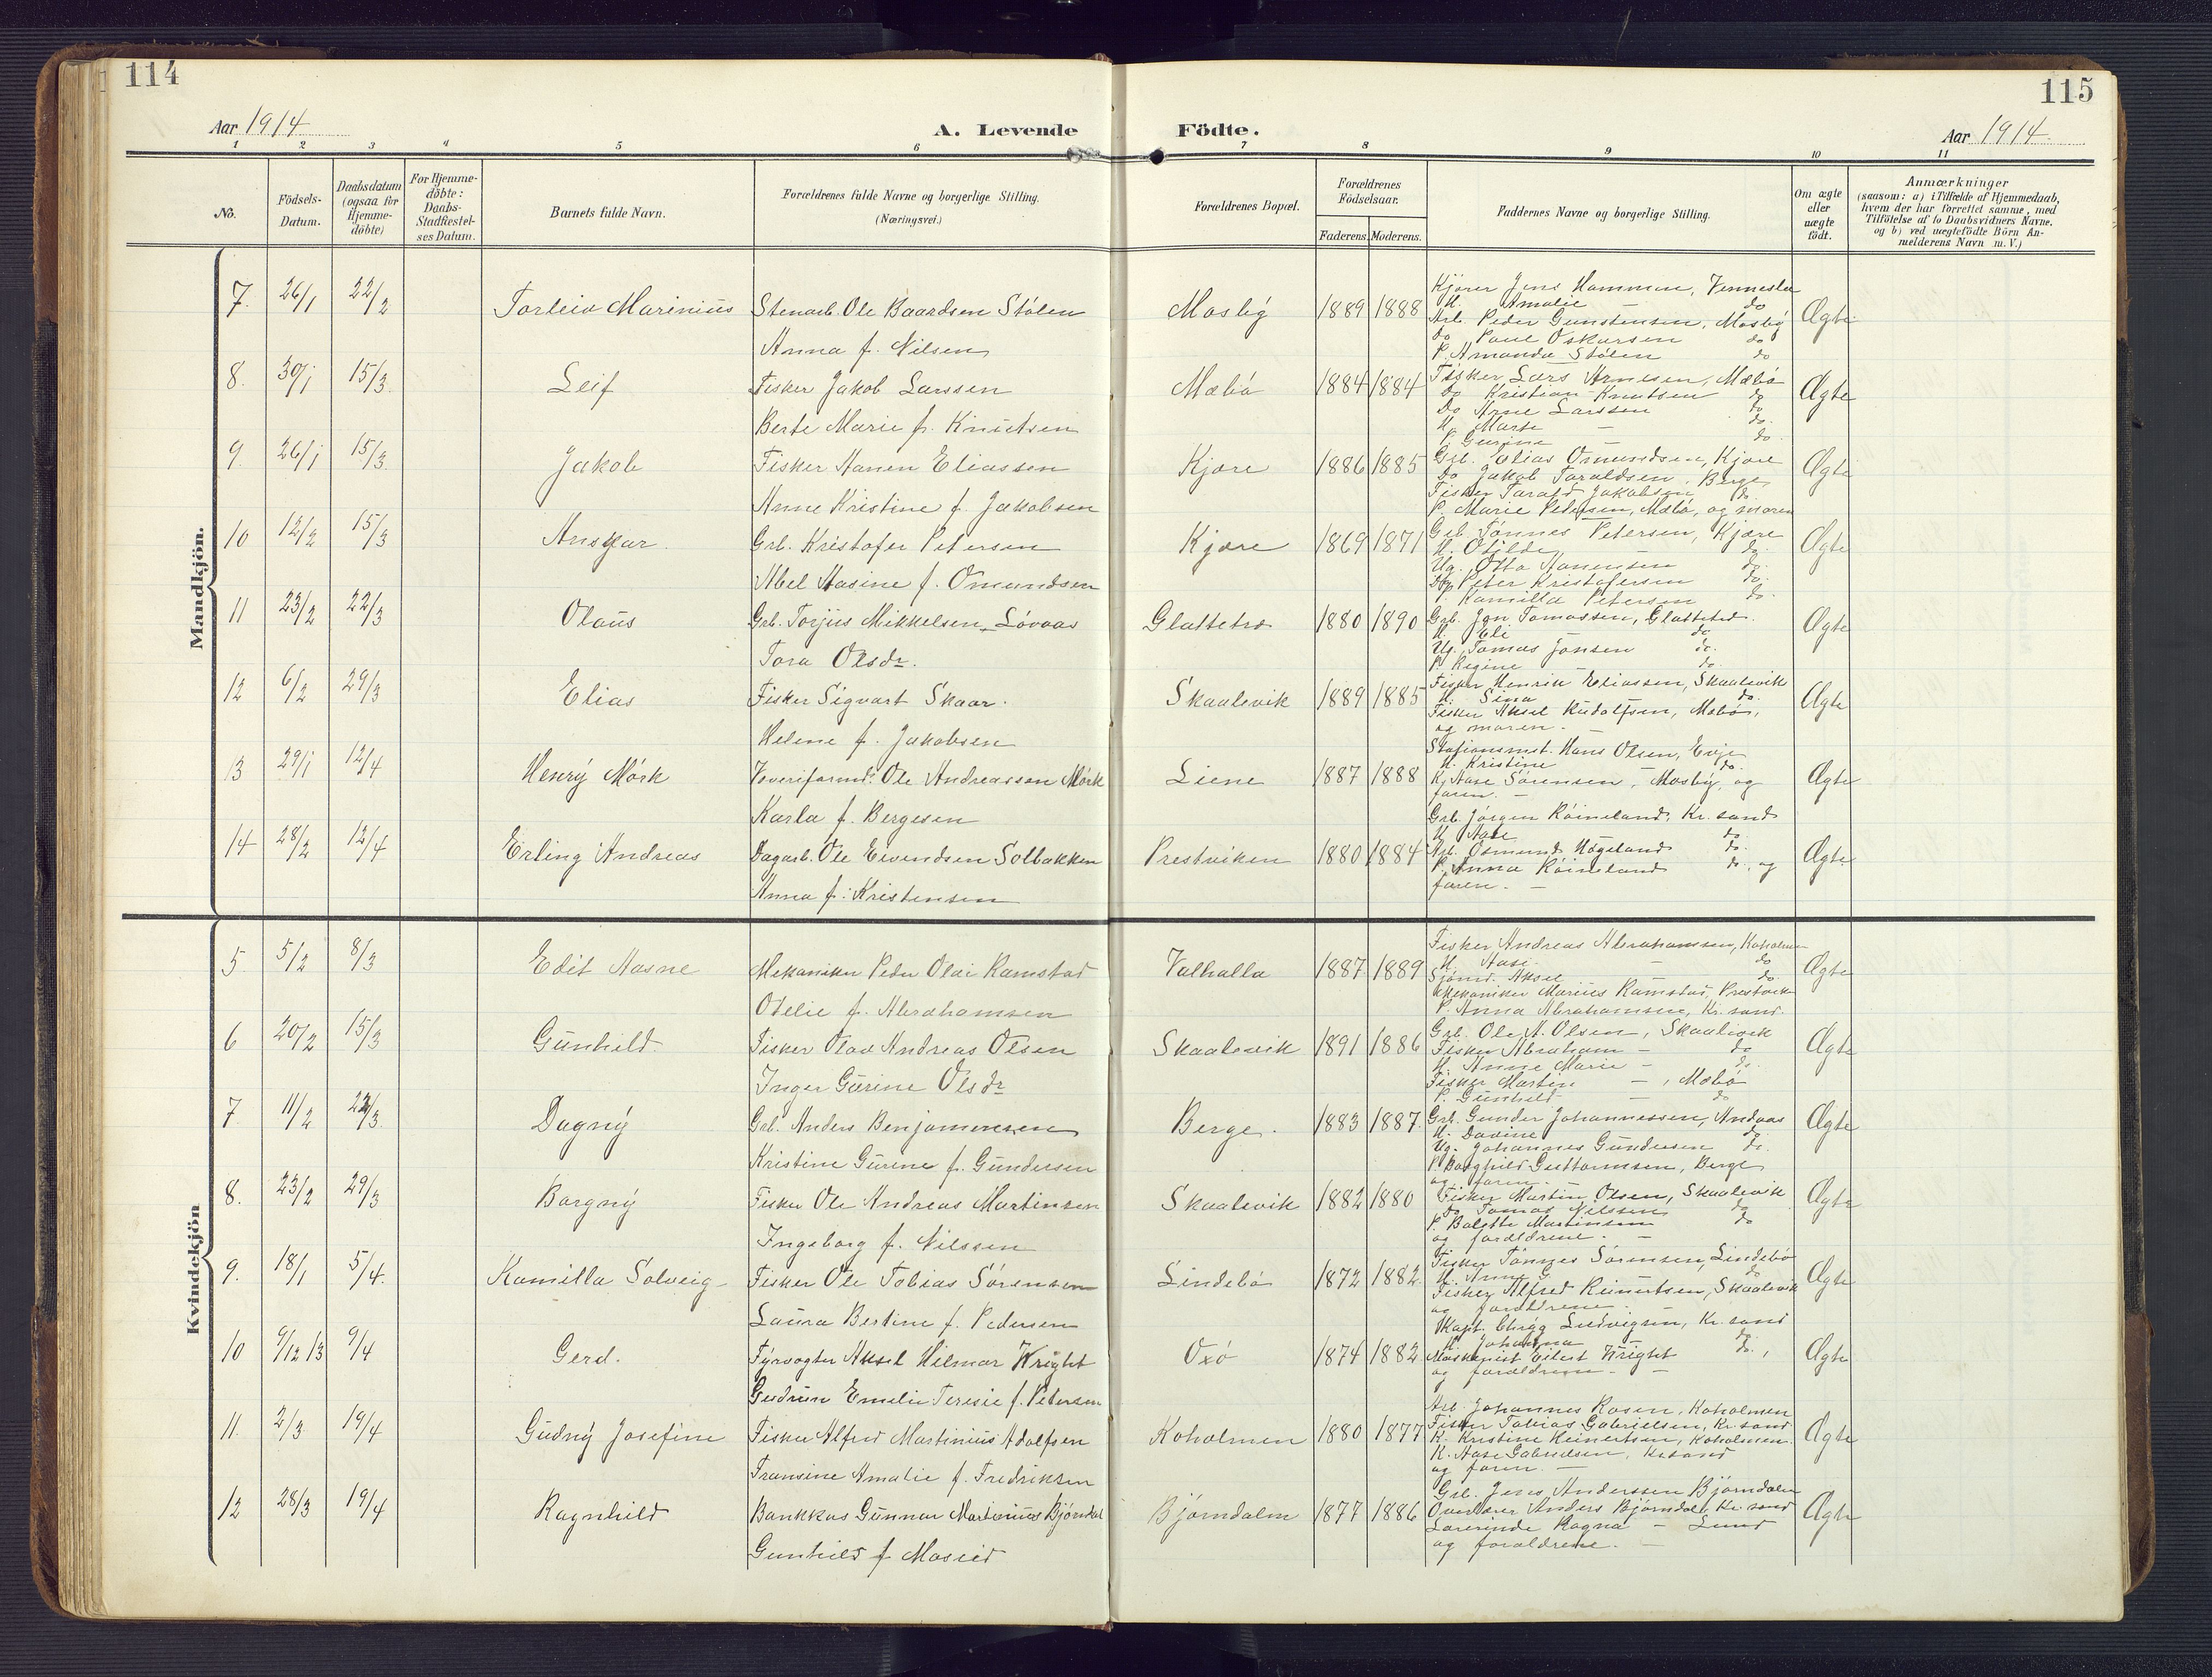 114
115
Aar 1914
A. Levende
Födte.
Aar 1914
1 2 3 4 5 6 7 8 9 10 11
No.
Födsels-
Datum.
Daabsdatum
(ogsaa for
Hjemme-
döbte)
For Hjemme-
döbte:
Daabs-
Stadfæstel-
ses Datum.
Barnets fulde Navn.
Forældrenes fulde Navne og borgerlige Stilling.
(Næringsvei.)
Forældrenes Bopæl.
Forældrenes
Födselsaar.
Faderens. Moderens.
Faddernes Navne og borgerlige Stilling.
Om ægte
eller
uægte
födt.
Anmærkninger
(saasom: a) i Tilfælde af Hjemmedaab,
hvem der har forrettet samme, med
Tilföielse af to Daabsvidners Navne,
og b) ved uægtefödte Börn An-
melderens Navn m. V.)
Mandkjön.
7. 26/1 22/2 Torleiv Marinius Stenarb. Ole Baardsen Stølen
Anna f. Nilsen
Mosby 1889 1888
Kjører Jens Hamman, Vennesla
H. Amalie — do
Arb. Peder Gunstensen, Mosby
do Paul Oskarsen do
P. Amanda Stølen do
Ægte
8. 30/1 15/3 Leif Fisker Jakob Larssen
Berte Marie f. Knudtsen
Mæbø 1884 1884
Fisker Lars Arnesen, Mæbø
Do Kristian Knutsen do
Do Arne Larssen do
H. Marte — do.
P. Gurine — do.
Ægte
9. 26/1 15/3 Jakob Fisker Hanen Eliassen
Anne Kristine f. Jakobsen
Kjære 1886 1885
Grb. Elias Omundsen, Kjære
Do Jakob Taraldsen, Berge
Fisker Tarald Jakobsen do.
P. Marie Pedersen, Mæbø, og moren
Ægte
10 12/2 15/3 Anskar Grb. Kristofer Petersen
Abel Aasine f. Omundsen
Kjære 1869 1871
Grb. Tønnes Petersen, Kjære
H. Otilde do.
Ug. Otto Hanensen do.
Peter Kristofersen do.
P. Kamilla Petersen do.
Ægte
11 23/2 22/3 Olaus Grb. Torjus Mikkelsen Løvaas
Tora Olsdr.
Glattetre 1880 1890
Grb. Jon Tomassen, Glattetre.
H. Eli — do
Ug. Tomas Jonsen do.
P. Regine — do.
Ægte
12 6/2 29/3 Elias Fisker Sigvart Skaar.
Helene f. Jakobsen
Skaalevik 1889 1885
Fisker Henrik Eliassen, Skaalevik
H. Sina — do.
Fisker Aksel Rudolfsen, Mæbø,
og moren. —
Ægte
13 29/1 12/4 Henry Mørk Væveriformd. Ole Andreassen Mørk
Karla f. Bergesen
Liene 1887 1888
Stationsmst. Hans Olsen, Evje
H. Kristine — do.
K. Aase Sørensen, Mosby, og
faren. —
Ægte
14 28/2 12/4 Erling Andreas Dagarb. Ole Eivendsen Solbakken
Anna f. Kristensen
Prestviken 1880 1884
Grb. Jørgen Røineland, Kr.sand
H. Aase do.
Arb. Osmund Høgeland do.
P. Anna Røineland do., og
faren. —
Ægte
Kvindekjön
5. 5/2 8/3 Edit Aasne Mekaniker Peder Olai Ramstad
Otelie f. Abrahamsen
Valhalla 1887 1889
Fisker Andreas Abrahamsen, Koholmen
H. Aase — do
Sjømd. Aksel — do.
Mekaniker Marius Ramstad, Prestvik
P. Anna Abrahamsen, Kr.sand
Ægte
6 20/2 15/3 Gunhild Fisker Olav Andreas Olsen
Inger Gurine Olsdr
Skaalevik 1891 1886
Grb. Ole A. Olsen, Skaalevik
Fisker Abraham — do
H. Anne Marie — do.
Fisker Martin —, Mæbø
P. Gunhild — do
Ægte
7 11/2 22/3 Dagny Grb. Anders Benjaminsen
Kristine Gurine f. Gundersen
Berge. 1883 1887.
Grb. Gunder Johannessen, Andaas
H. Davine do.
Ug. Johannes Gundersen do.
P. Borghild Guttormsen, Berge
og faren. —
Ægte
8. 23/2 29/3 Borgny Fisker Ole Andreas Martinsen
Ingeborg f. Nilssen
Skaalevik 1882 1880
Fisker Martin Olsen, Skaalevik
Do Tomas Nilssen do
P. Bolette Martinsen do
og forældrene. —
Ægte
9. 18/1 5/4. Kamilla Solveig Fisker Ole Tobias Sørensen
Laura Bertine f. Pedersen
Lindebø 1872 1882.
Fisker Tønnes Sørensen, Lindebø
H. Anna G. do
Fisker Alfred Reinertsen, Skaalevik
og forældrene. —
Ægte
10 9/12 13 9/4 Gerd. Fyrvogter Aksel Hilmar Wright
Gudrun Emelie Teresie f. Petersen
Oxø 1874 1882.
Kapt. Chrigg Ludvigsen, Kr.sand
H. Johanna do.
Maskinist Eilert Wright do.,
og forældrene. —
Ægte
11. 2/3 19/4 Gudny Josefine Fisker Alfred Martinius Adolfsen
Fransine Amalie f. Fredriksen
Koholmen 1880 1877
Arb. Johannes Rosen, Koholmen
Fisker Tobias Gabrielsen, Kr.sand.
K. Kristine Reinertsen, Koholmen.
K. Aase Gabrielsen, Kr.sand
og faren. —
Ægte
12 28/3 19/4 Ragnhild Bankkas. Gunnar Martinius Bjørndal
Gunhild f. Moseid
Bjørndalen 1877 1886
Grb. Jens Anderssen Bjørndalen
Overlærer Anders Bjørndal, Kr.sand
Lærerinde Ragna — Lund
og forældrene. —
Ægte